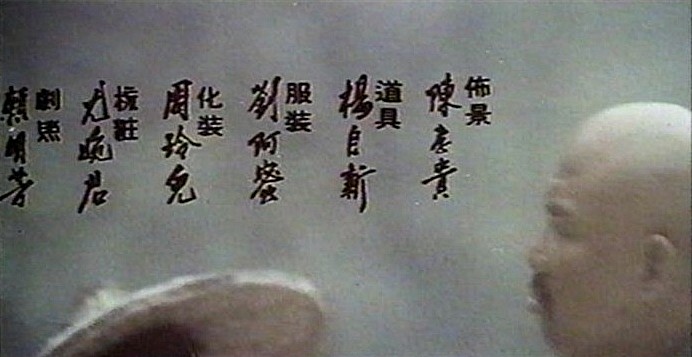 佈景
陳老貴
道具
楊自新
服裝
劉阿螢
化裝
周玲兒
梳妝
尤婉君
劇照
賴明芳